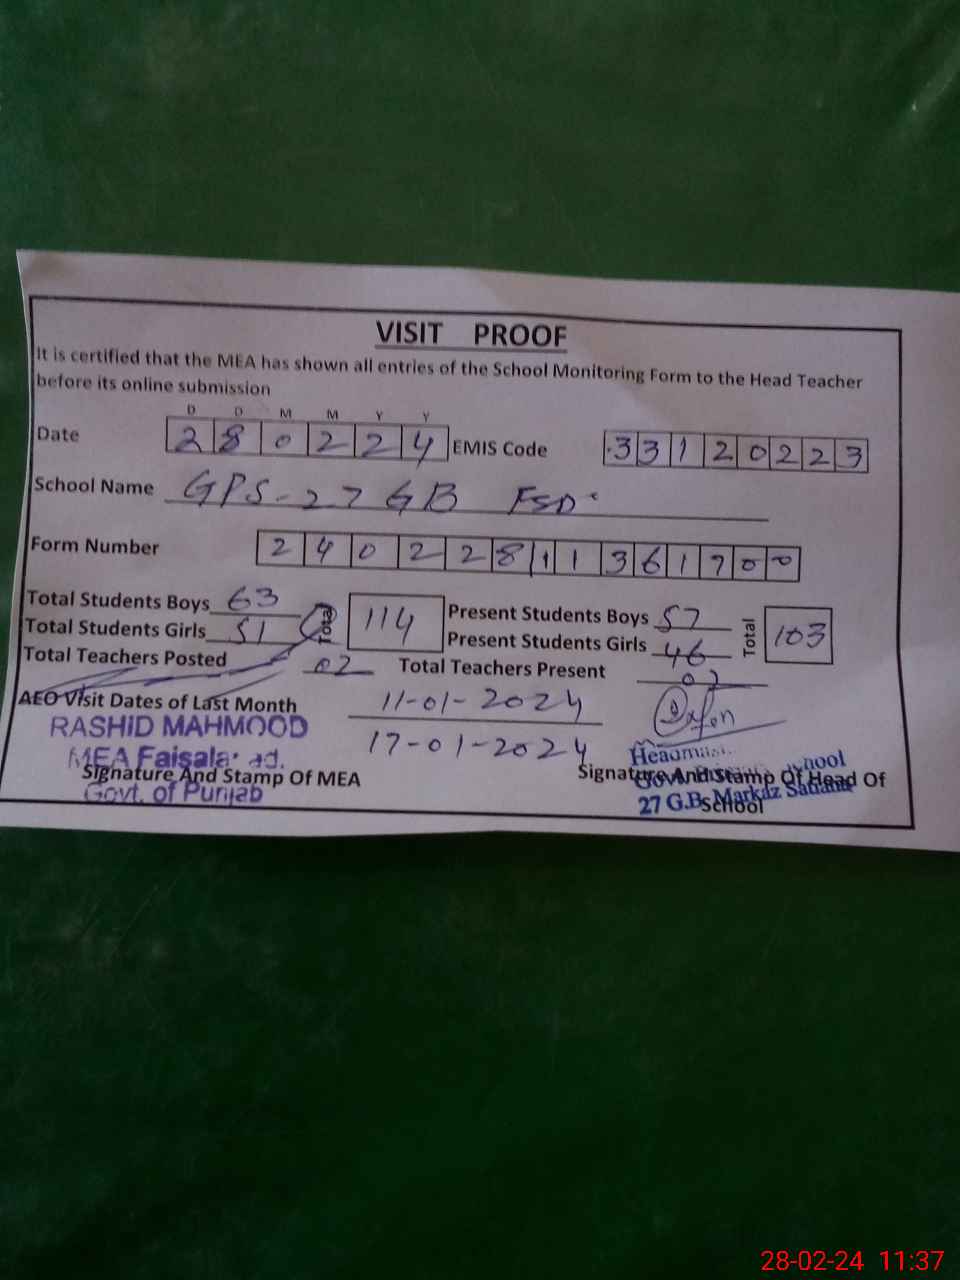 VISIT PROOF
It is certified that the MEA has shown all entries of the School Monitoring Form to the Head Teacher
before its online submission
D D M M Y Y
Date 2 8 0 2 2 4 EMIS Code 3 3 1 2 0 2 2 3
School Name GPS-27 GB FSD
Form Number 2 4 0 2 2 8 1 1 3 6 1 7 0 0
Total Students Boys 63 Total 114 Present Students Boys 57 Total 103
Total Students Girls 51 Present Students Girls 46
Total Teachers Posted 02 Total Teachers Present 02
AEO Visit Dates of Last Month 11-01-2024
17-01-2024
RASHID MAHMOOD
MEA Faisalabad.
Signature And Stamp Of MEA
Govt. of Punjab
Signature And Stamp Of Head Of
School
27 G.B. Markaz
28-02-24 11:37